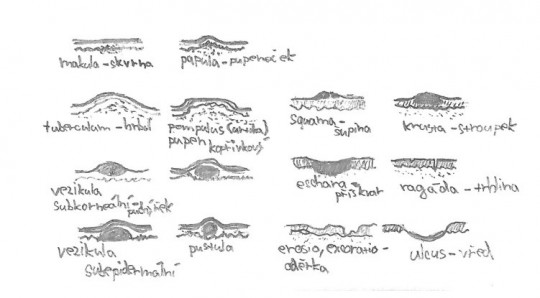 makula - skvrna
papula - pupeneček
tuberculum - hrbol
pompulus (urtika)
pupen
kopřivkový
squama -
šupina
krusta - stroupek
vezikula
subkorneální -
puchýřek
eschara -
příškvar
ragáda - trhlina
vezikula
subepidermální
pustula
erosio, excoriatio -
oděrka
ulcus - vřed